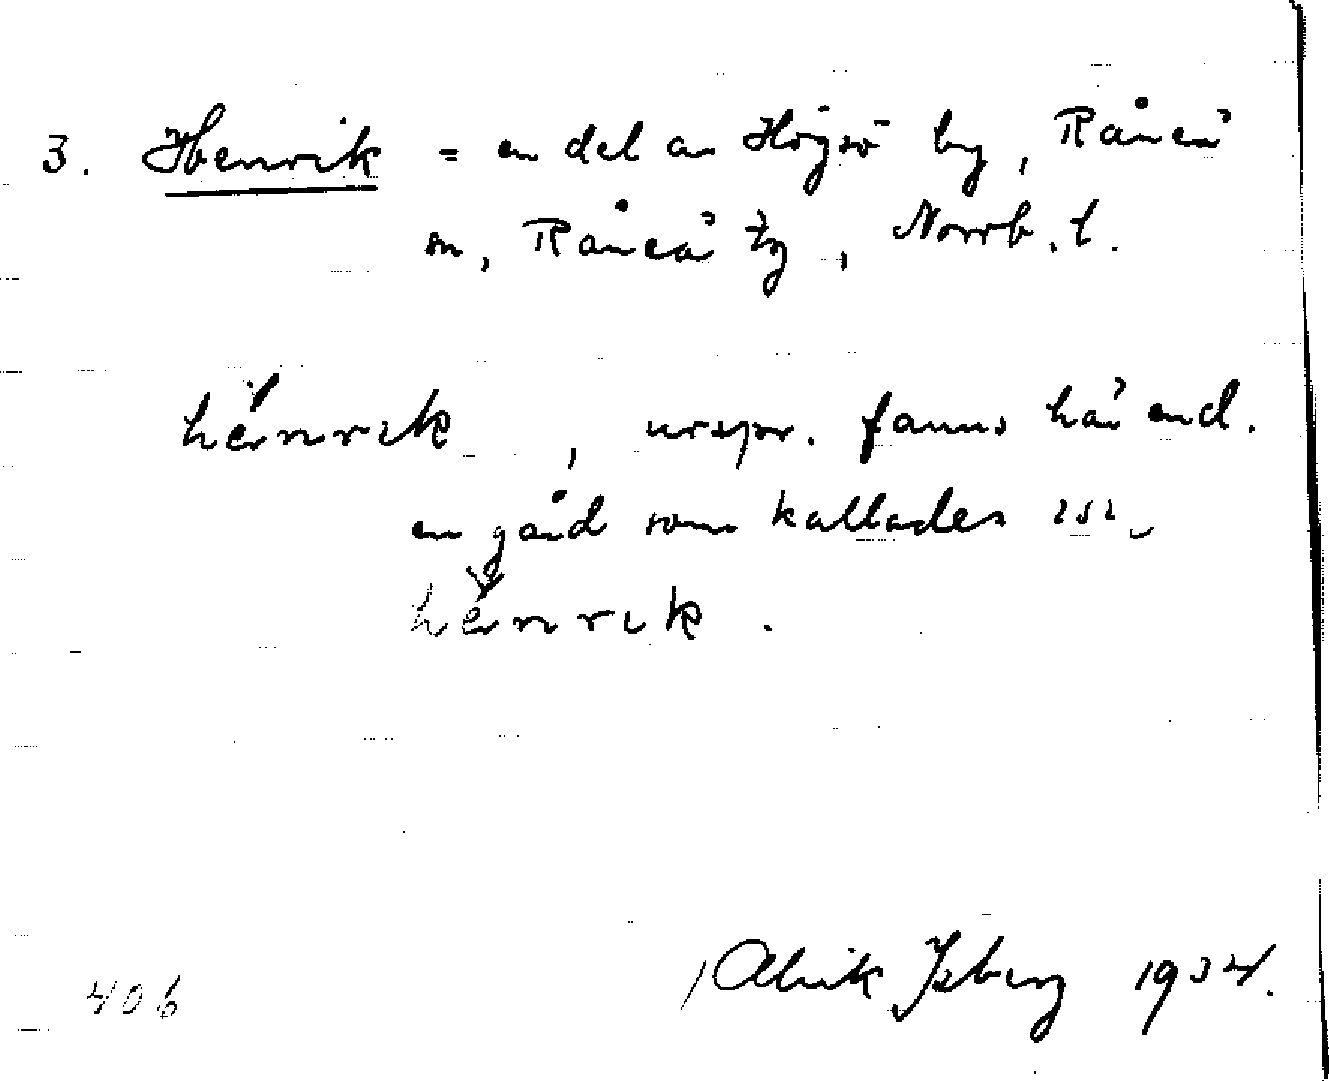 3. Henrik = en del av Högsö by, Råneå
sn, Råneå tg, Norrb. l.
henrik, urspr. fanns här end.
en gård som kallades
henrik.
Alrik Isberg 1934.
406